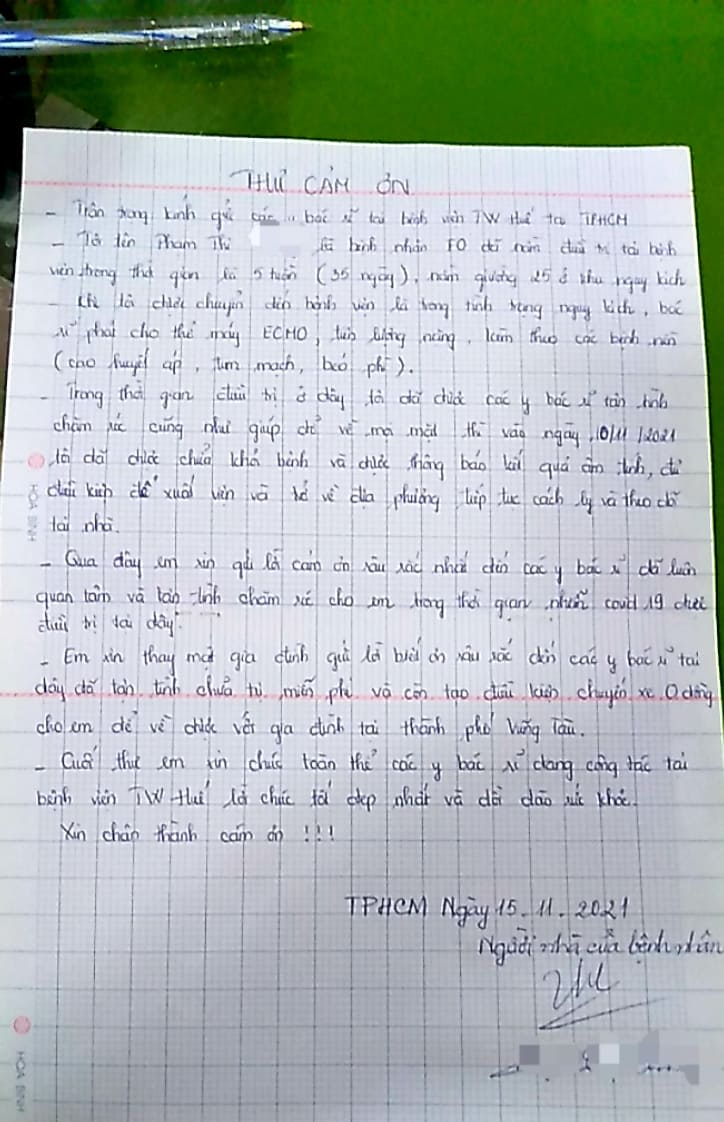 THƯ CẢM ƠN
- Trân trọng kính gửi các y bác sĩ tại bệnh viện TW Huế tại TPHCM
- Tôi tên Phạm Thị là bệnh nhân F0 đã nằm điều trị tại bệnh
viện trong thời gian là 5 tuần (35 ngày), nằm giường 25 ở khu nguy kịch
- Khi tôi được chuyển đến bệnh viện là trong tình trạng nguy kịch, bác
sĩ phải cho thở máy ECMO, tiên lượng nặng, kèm theo các bệnh nền
(cao huyết áp, tim mạch, béo phì).
- Trong thời gian điều trị ở đây, tôi đã được các y bác sĩ tận tình
chăm sóc cũng như giúp đỡ về mọi mặt thì vào ngày 10/11/2021
tôi đã được chữa khỏi bệnh và được thông báo kết quả âm tính, đủ
điều kiện để xuất viện và trở về địa phương tiếp tục cách ly và theo dõi
tại nhà.
- Qua đây em xin gửi lời cảm ơn sâu sắc nhất đến các y bác sĩ đã luôn
quan tâm và tận tình chăm sóc cho em trong thời gian nhiễm covid 19 được
điều trị tại đây.
- Em xin thay mặt gia đình gửi lời biết ơn sâu sắc đến các y bác sĩ tại
đây đã tận tình chữa trị miễn phí và còn tạo điều kiện chuyến xe 0 đồng
cho em để về được với gia đình tại thành phố Vũng Tàu.
- Cuối thư em xin chúc toàn thể các y bác sĩ đang công tác tại
bệnh viện TW Huế lời chúc tốt đẹp nhất và dồi dào sức khỏe.
Xin chân thành cảm ơn !!!
TPHCM Ngày 15.11.2021
Người nhà của bệnh nhân
HOA BINH
HOA BINH